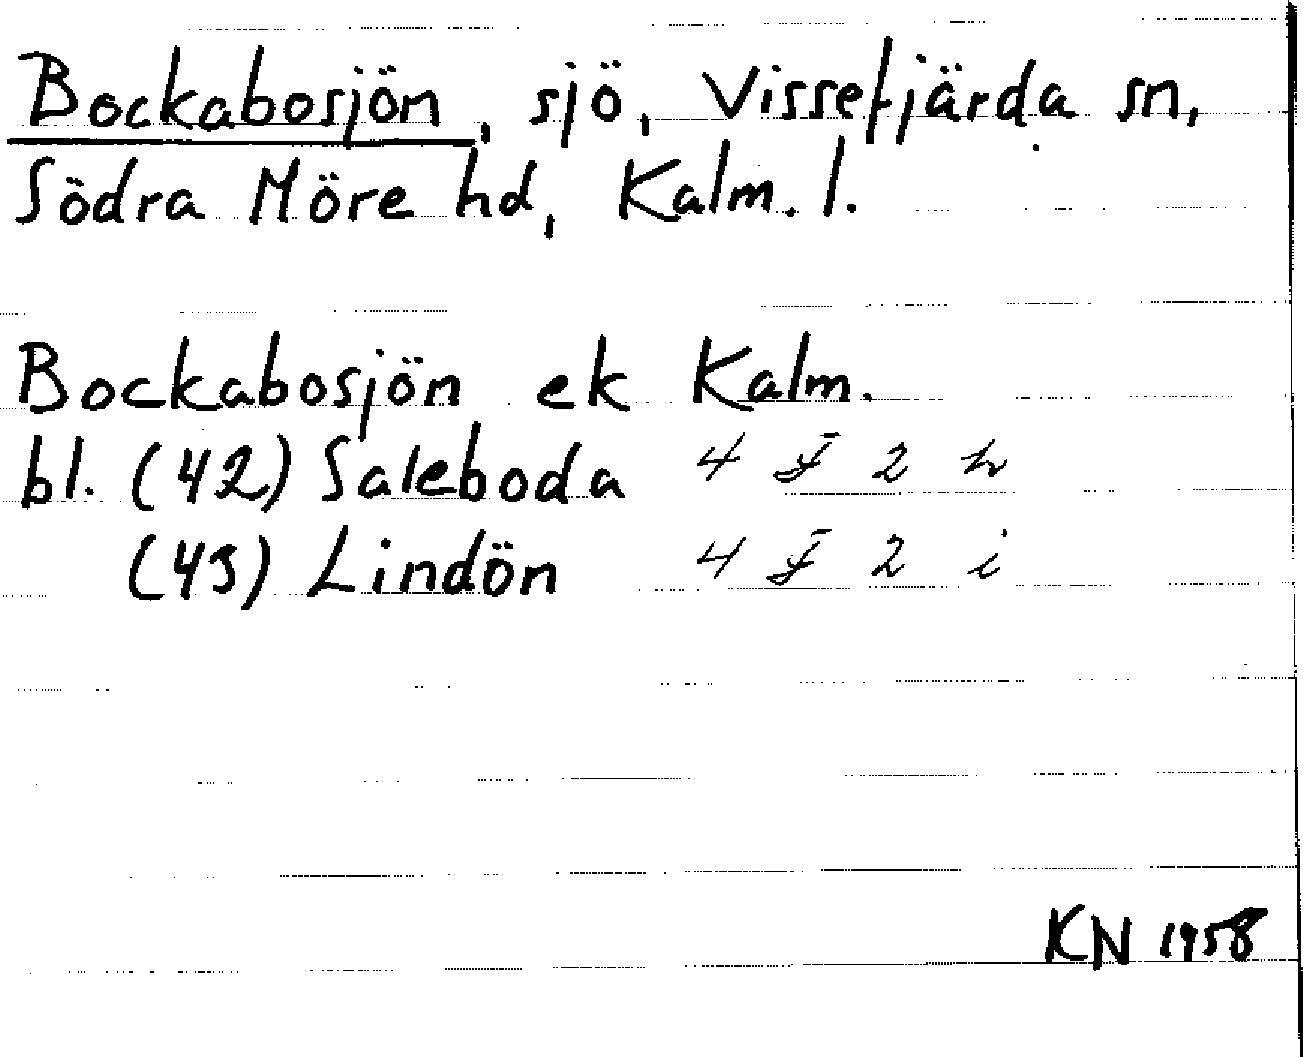 Bockabosjön, sjö, Vissefjärda sn,
Södra Möre hd, Kalm. l.
Bockabosjön ek Kalm.
bl. (42) Saleboda 4 F 2 h
(43) Lindön 4 F 2 i
KN 1958